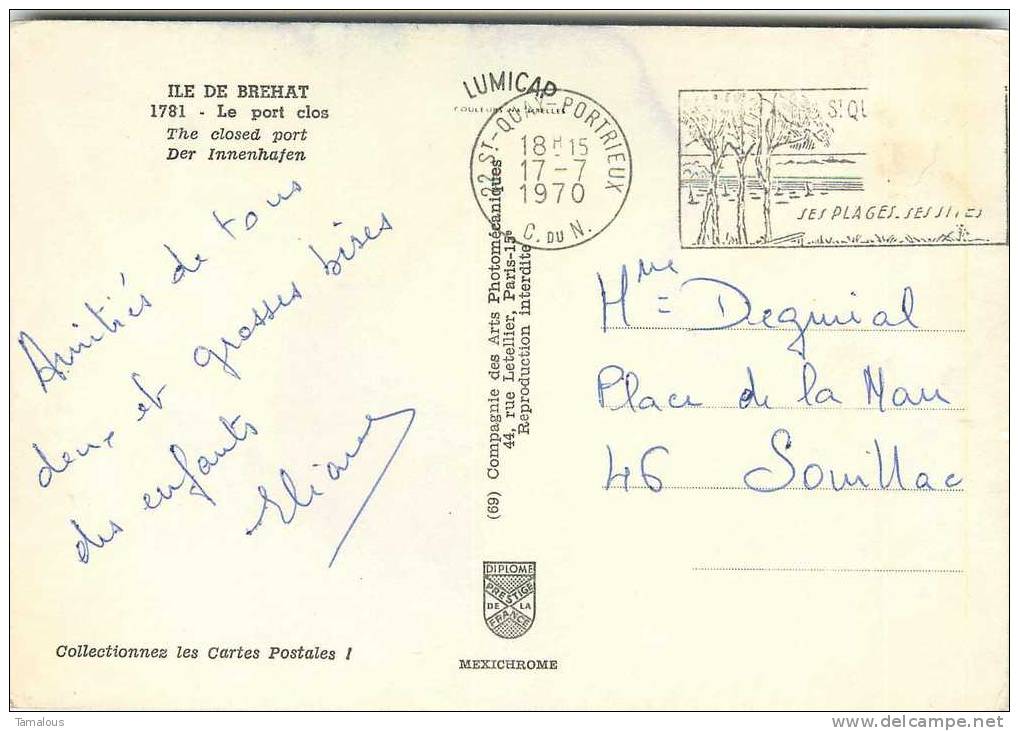 ILE DE BREHAT
1781 - Le port clos
The closed port
Der Innenhafen
Amitiés de tous
deux et grosses bises
des enfants
Eliane
Collectionnez les Cartes Postales !
LUMICAP
22 ST-QUAY-PORTRIEUX
18H15
17-7
1970
C. DU N.
(69) Compagnie des Arts Photomécaniques
44, rue Letellier, Paris-15e
Reproduction interdite
DIPLOME
PRESTIGE
DE LA
FRANCE
MEXICHROME
St QU
SES PLAGES. SES SITES
Mme Deguial
Place de la
46 Souillac
Tamalous
http://www.delcampe.net